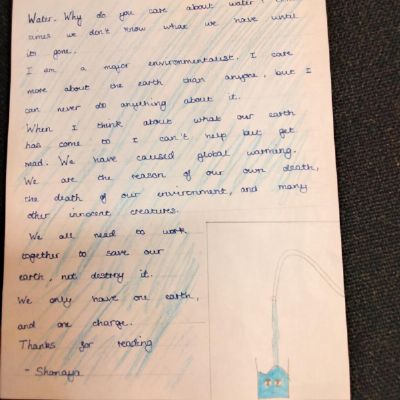 Water. Why do you care about water?
times we don't know what we have until
its gone.
I am a major environmentalist. I care
more about the earth than anyone, but I
can never do anything about it.
When I think about what our earth
has come to I can't help but get
mad. We have caused global warming.
We are the reason of our own death,
the death of our environment, and many
other innocent creatures.
We all need to work
together to save our
earth, not destroy it.
We only have one earth,
and one charge.
Thanks for reading
- Shanaya